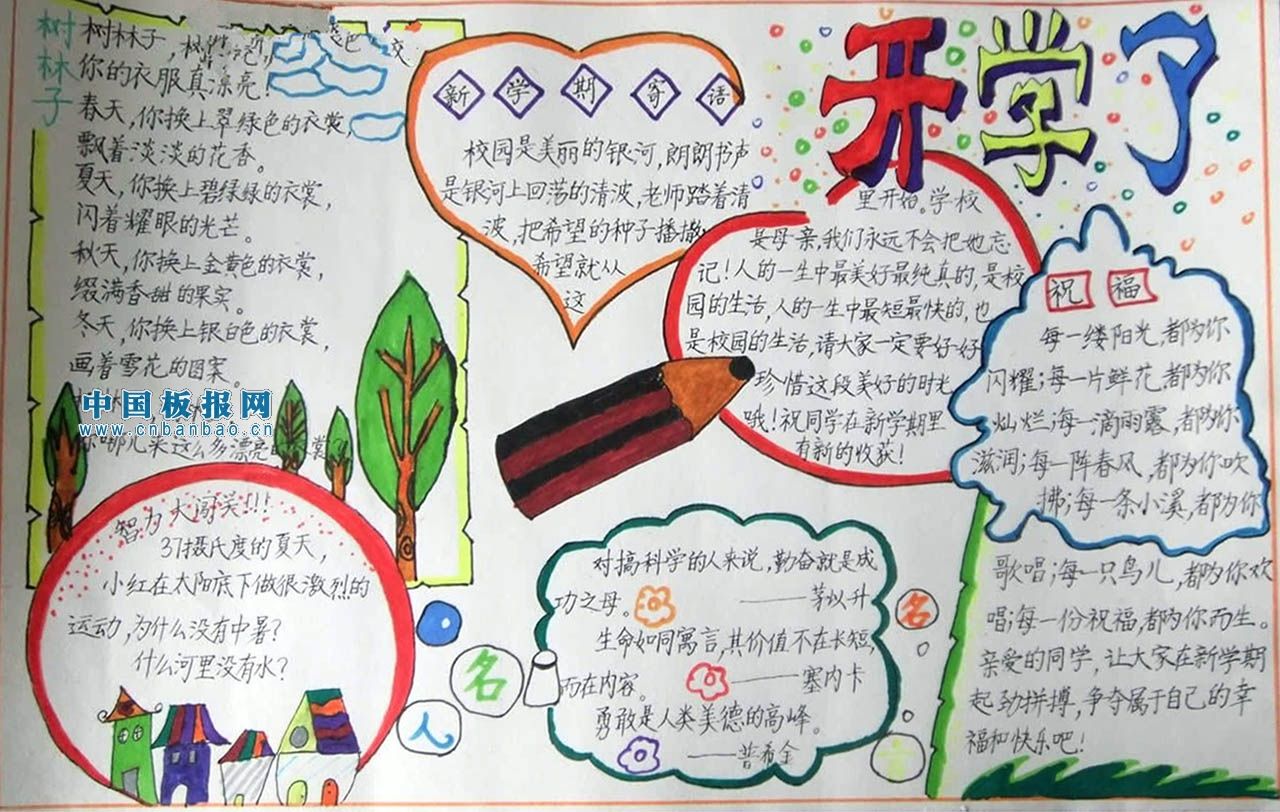 树林子
树林子,树
你的衣服真漂亮!
春天,你换上翠绿色的衣裳,
飘着淡淡的花香。
夏天,你换上碧绿绿的衣裳,
闪着耀眼的光芒。
秋天,你换上金黄色的衣裳,
缀满香甜的果实。
冬天,你换上银白色的衣裳,
画着雪花的图案。
中国板报网
www.cnbanbao.cn
你哪儿来这么多漂亮的衣裳
新学期寄语
校园是美丽的银河,朗朗书声
是银河上回荡的清波,老师踏着清
波,把希望的种子播撒
希望就从
这
开学了
里开始。学校
是母亲,我们永远不会把她忘
记!人的一生中最美好最纯真的,是校
园的生活,人的一生中最短最快的,也
是校园的生活,请大家一定要好好
珍惜这段美好的时光
哦!祝同学在新学期里
有新的收获!
祝福
每一缕阳光,都为你
闪耀;每一片鲜花,都为你
灿烂;每一滴雨露,都为你
滋润;每一阵春风,都为你吹
拂;每一条小溪,都为你
歌唱;每一只鸟儿,都为你欢
唱;每一份祝福,都为你而生。
亲爱的同学,让大家在新学期
起劲拼搏,争夺属于自己的幸
福和快乐吧!
智力大闯关!!!
37摄氏度的夏天,
小红在太阳底下做很激烈的
运动,为什么没有中暑?
什么河里没有水?
名
人
名
言
对搞科学的人来说,勤奋就是成
功之母。
——茅以升
生命如同寓言,其价值不在长短,
而在内容。
——塞内卡
勇敢是人类美德的高峰。
——普希金